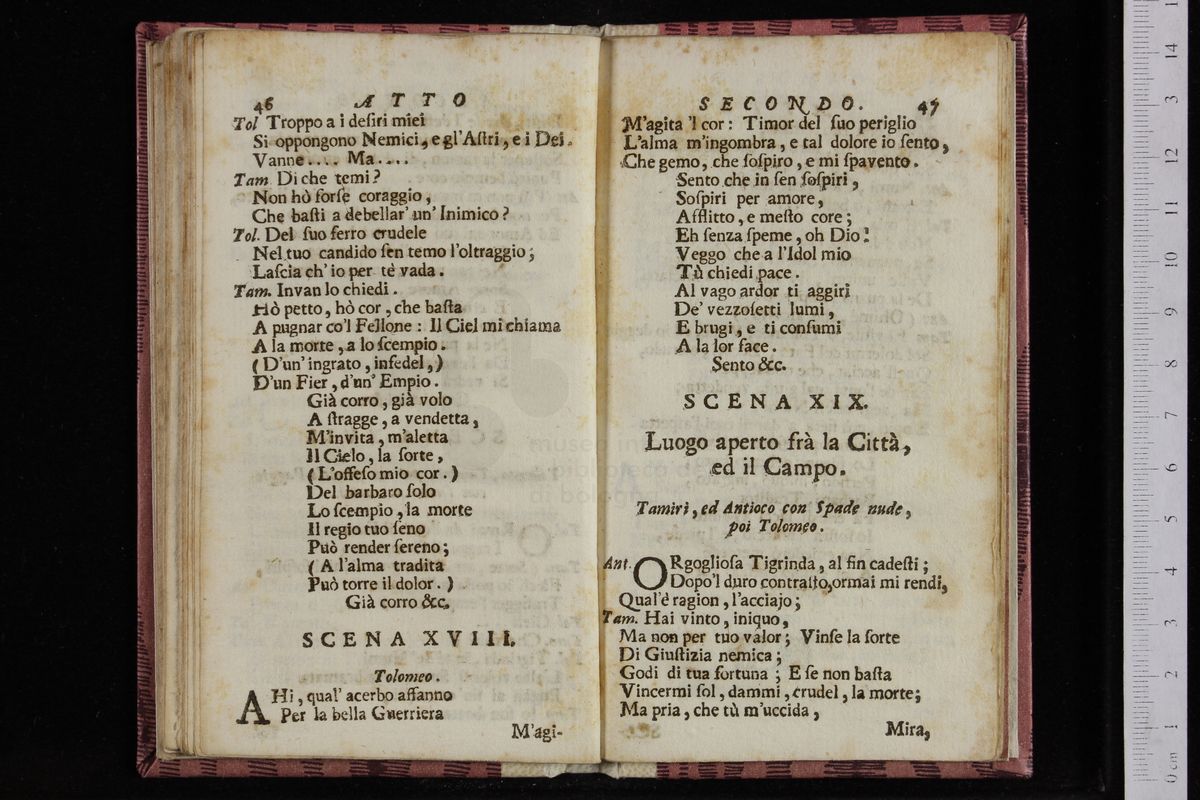 46 ATTO
Tol Troppo a i deſiri miei
Si oppongono Nemici, e gl'Aſtri, e i Dei.
Vanne.... Ma....
Tam Di che temi?
Non hò forſe coraggio,
Che baſti a debellar' un' Inimico?
Tol. Del ſuo ferro crudele
Nel tuo candido ſen temo l'oltraggio;
Laſcia ch' io per tè vada.
Tam. Invan lo chiedi.
Hò petto, hò cor, che baſta
A pugnar co'l Fellone: Il Ciel mi chiama
A la morte, a lo ſcempio.
(D'un' ingrato, infedel,)
D'un Fier, d'un' Empio.
Già corro, già volo
A ſtragge, a vendetta,
M'invita, m'aletta
Il Cielo, la ſorte,
(L'offeſo mio cor.)
Del barbaro ſolo
Lo ſcempio, la morte
Il regio tuo ſeno
Può render ſereno;
(A l'alma tradita
Può torre il dolor.)
Già corro &c.
SCENA XVIII.
Tolomeo.
AHi, qual' acerbo affanno
Per la bella Guerriera
M'agi-
SECONDO. 47
M'agita 'l cor: Timor del ſuo periglio
L'alma m'ingombra, e tal dolore io ſento,
Che gemo, che ſoſpiro, e mi ſpavento.
Sento che in ſen ſoſpiri,
Soſpiri per amore,
Afflitto, e meſto core;
Eh ſenza ſpeme, oh Dio!
Veggo che a l'Idol mio
Tù chiedi pace.
Al vago ardor ti aggiri
De' vezzoſetti lumi,
E brugi, e ti conſumi
A la lor face.
Sento &c.
SCENA XIX.
Luogo aperto frà la Città,
ed il Campo.
Tamiri, ed Antioco con Spade nude,
poi Tolomeo.
Ant. ORgoglioſa Tigrinda, al fin cadeſti;
Dopo'l duro contraſto, ormai mi rendi,
Qual'è ragion, l'acciajo;
Tam. Hai vinto, iniquo,
Ma non per tuo valor; Vinſe la ſorte
Di Giuſtizia nemica;
Godi di tua fortuna; E ſe non baſta
Vincermi ſol, dammi, crudel, la morte;
Ma pria, che tù m'uccida,
Mira,